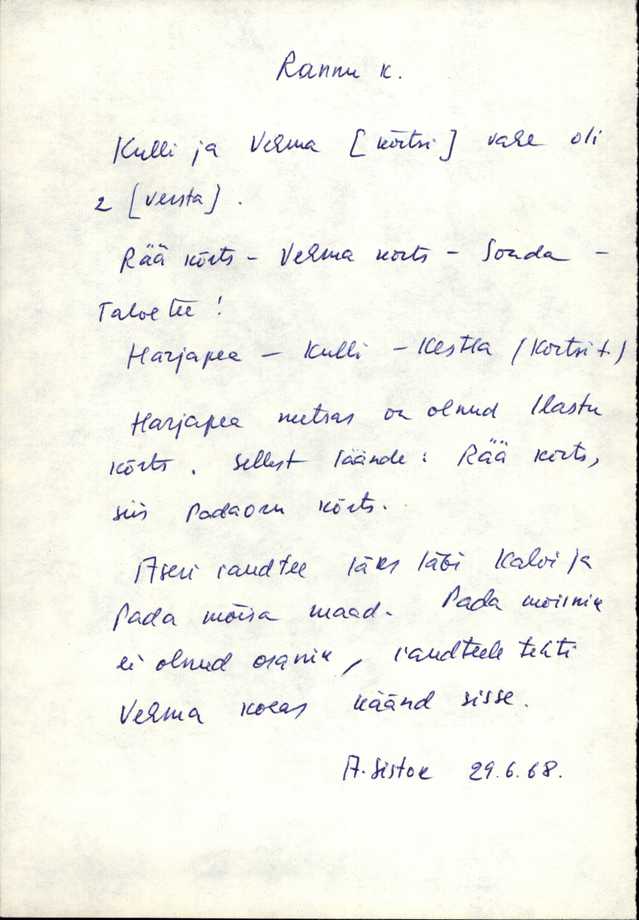 Rannu k.
Kulli ja Velma [kõrtsi] vahe oli
2 [versta].
Rää kõrts - Velma kõrts - Sonda -
Taloetee!
Harjapea - Kulli - Kestla (Kõrtsi t.)
Harjapea metsas on olnud Ilastu
kõrts. Sellest läände: Rää kõrts,
siis Padaoru kõrts.
Aseri raudtee läks läbi Kalvi ja
Pada mõisa maad. Pada moisnik
ei olnud osanik, raudteele tehti
Velma kohas käänd sisse.
A. Sistok 29.6.68.